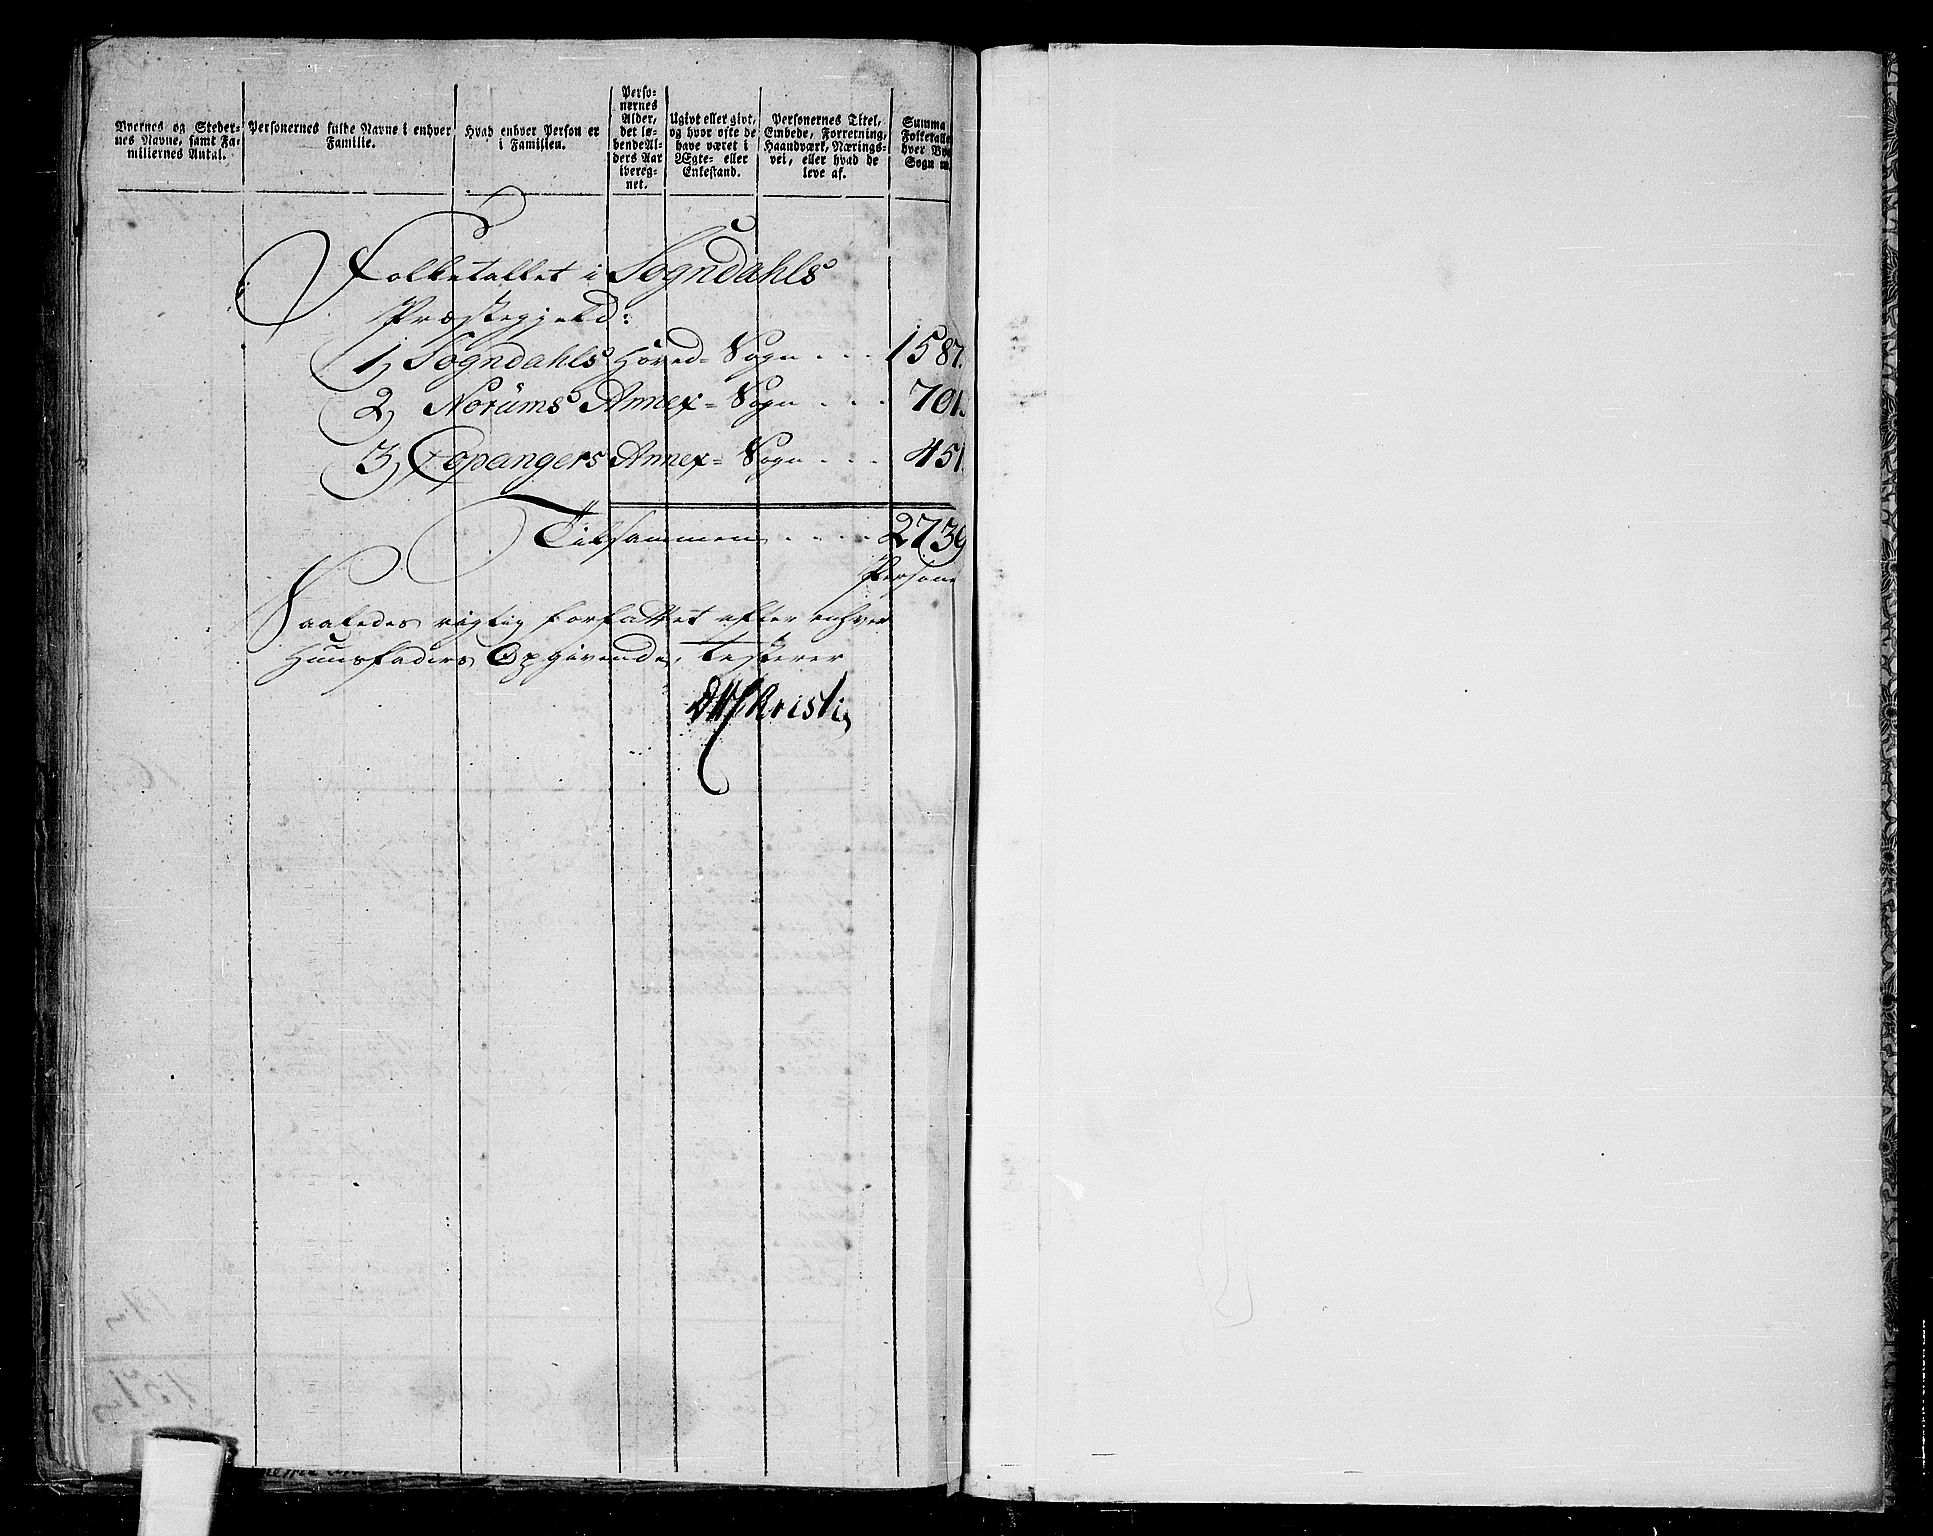 Byernes og Steder-
nes Navne, samt Fa-
miliernes Antal.
Personernes fulde Navne i enhver
Familie.
Hvad enhver Person er
i Familien.
Perso-
nernes
Alder,
det lø-
bende Al-
ders Aar
ibereg-
net.
Ugivt eller givt,
og hvor ofte de
have været i
Ægte- eller
Enkestand.
Personernes Titel,
Embede, Forretning,
Haandværk, Nærings-
vei, eller hvad de
leve af.
Summa
Folketallet
hver By
Sogn m.
Folketallet i Sogndahls
Præstegjeld:
1) Sogndahls Hoved= Sogn . . . 1587.
2) Norums Annex= Sogn . . . 701.
3) Copangers Annex= Sogn . . . 451.
Tilsammen . . . . 2739
Persone
Saaledes rigtig forfattet efter enhver
Huusfaders Opgivende, testerer
DWChristie